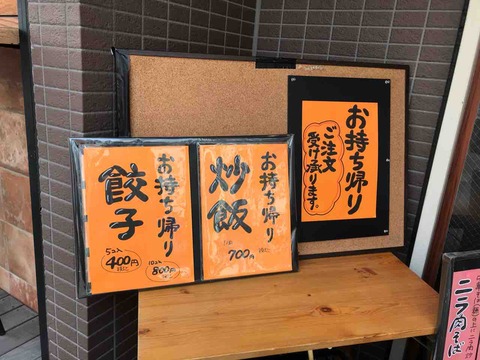 お持ち帰り
餃子
5コ入
400円
税込
10コ入
800円
税込
お持ち帰り
炒飯
700円
税込
お持ち帰り
ご注文
受け承ります。
ニラ肉そば